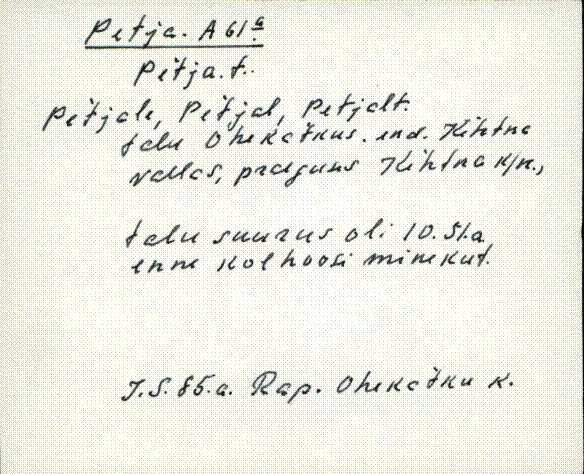 Petja. A 61a
Petja. t.
Petjale, Petjal, Petjalt.
talu Ohekatkus. end. Kehtna
vallas, praeguns Kehtna k/n.,
talu suurus oli 10.51.a
enne kolhoosi minekut.
I.S. 85.a. Rap. Ohekatku k.